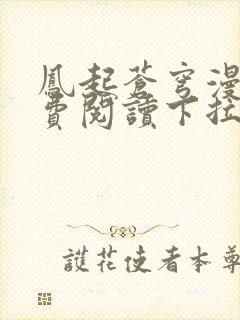 鳳起蒼穹漫
費閱讀下拉
護花使者本尊